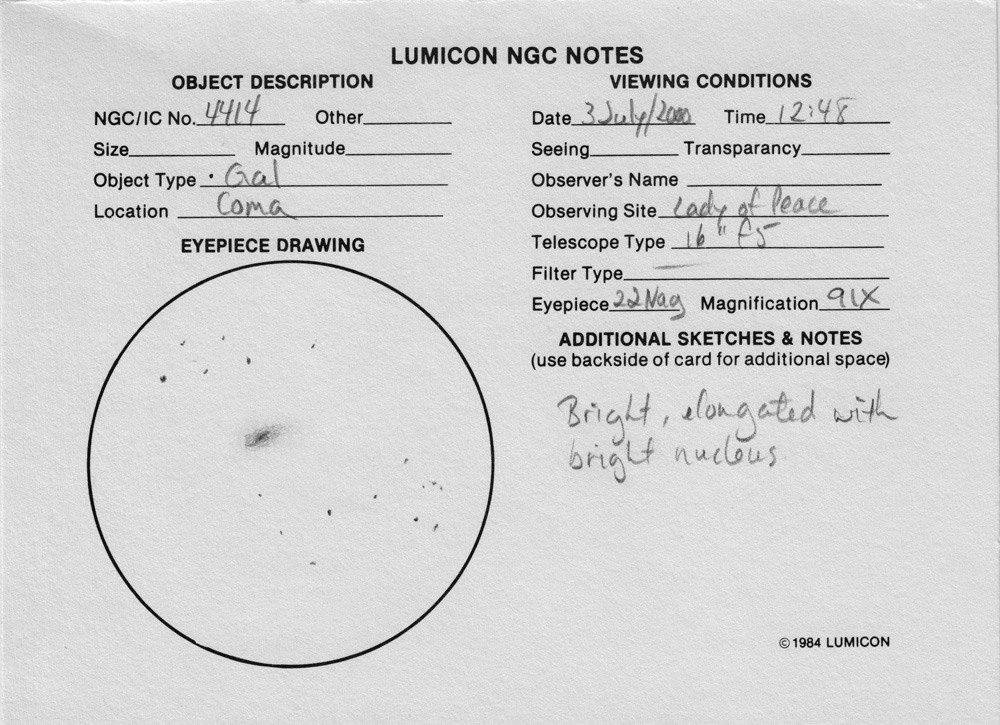 LUMICON NGC NOTES
OBJECT DESCRIPTION
NGC/IC No. 4414 Other
Size Magnitude
Object Type Gal
Location Coma
EYEPIECE DRAWING
VIEWING CONDITIONS
Date 3 July/2000 Time 12:48
Seeing Transparancy
Observer's Name
Observing Site Lady of Peace
Telescope Type 16" f5
Filter Type —
Eyepiece 22 Nag Magnification 91X
ADDITIONAL SKETCHES & NOTES
(use backside of card for additional space)
Bright, elongated with
bright nucleus
© 1984 LUMICON